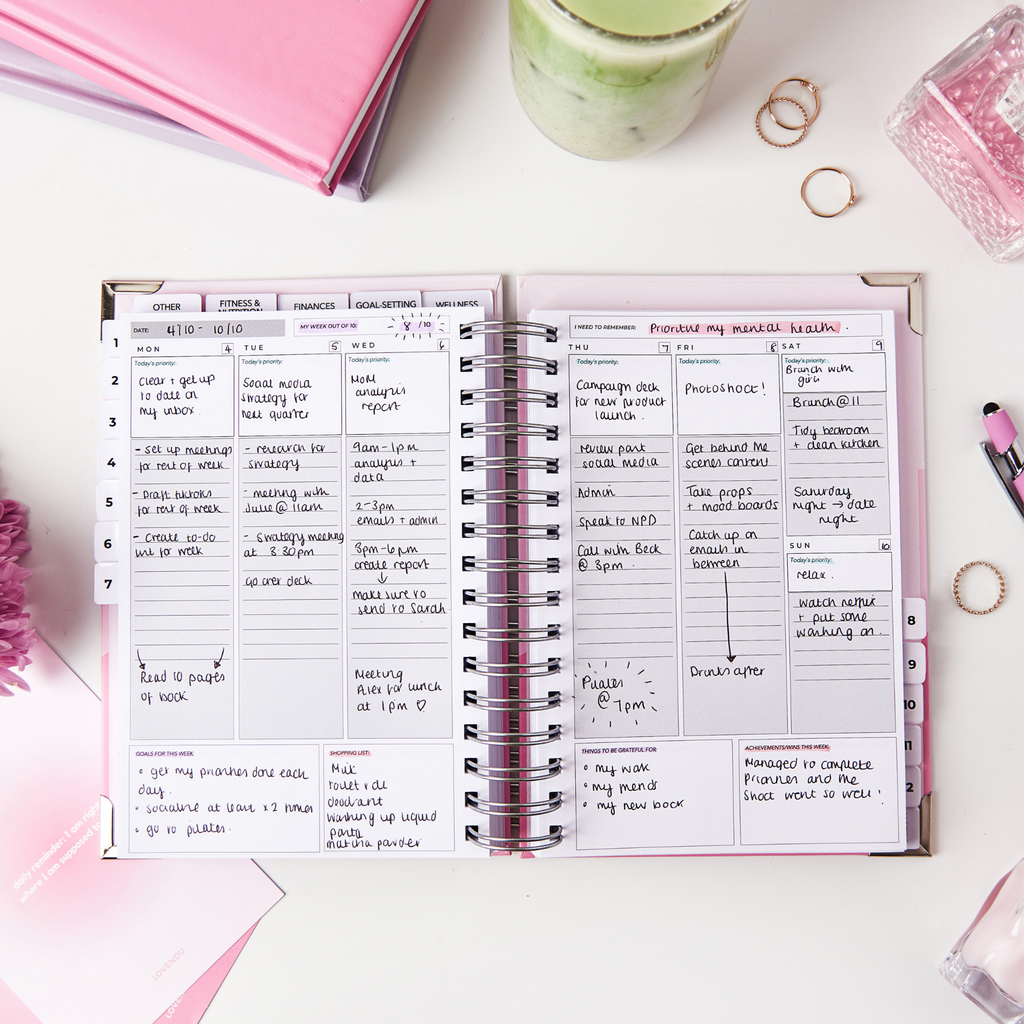 OTHER
FITNESS &
NUTRITION
FINANCES
GOAL-SETTING
WELLNESS
DATE: 4/10 - 10/10
MY WEEK OUT OF 10: 8 /10
1
2
3
4
5
6
7
MON 4
Today's priority:
Clear + get up
to date on
my inbox.
- set up meetings
for rest of week
- Draft tiktoks
for rest of week
- Create to-do
list for week
Read 10 pages
of book
TUE 5
Today's priority:
Social media
strategy for
next quarter
- research for
strategy
- meeting with
Julie @ 11am
- Strategy meeting
at 3:30pm
go over deck
WED 6
Today's priority:
MoM
analysis
report
9am - 1pm
analysis +
data
2-3pm
emails + admin
3pm-6pm
create report
make sure to
send to Sarah
Meeting
Alex for lunch
at 1pm ♡
GOALS FOR THIS WEEK:
• get my priorities done each
day.
• socialise at least x 2 times
• go to pilates.
SHOPPING LIST:
Milk
toilet roll
deodorant
Washing up liquid
pasta
matcha powder
I NEED TO REMEMBER: Prioritise my mental health.
THU 7
Campaign deck
for new product
launch.
review past
social media
Admin
Speak to NPD
Call with Beck
@ 3pm.
Pilates
@
7pm
FRI 8
Today's priority:
Photoshoot!
Get behind the
scenes content
Take props
+ mood boards
Catch up on
emails in
between
Drinks after
SAT 9
Today's priority:
Branch with
girls
Branch @ 11
Tidy bedroom
+ clean kitchen
Saturday
night → date
night
SUN 10
Today's priority:
relax.
Watch netflix
+ put some
washing on.
THINGS TO BE GRATEFUL FOR:
• my walk
• my friends
• my new book
ACHIEVEMENTS/WINS THIS WEEK:
Managed to complete
Priorities and the
Shoot went so well!
8
9
10
11
2
daily reminder: i am right
where i am supposed to
LOVENDU